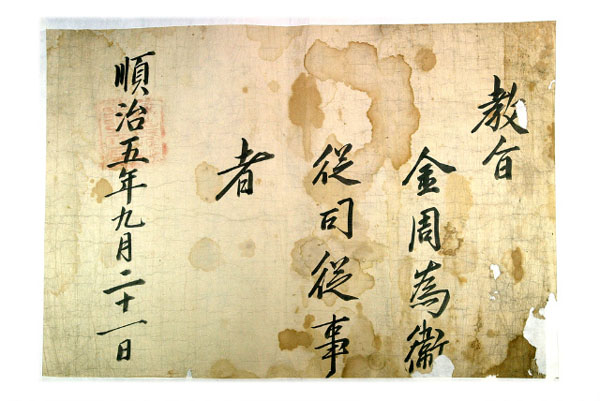 教旨
金周為衛
從司從事
者
順治五年九月二十一日